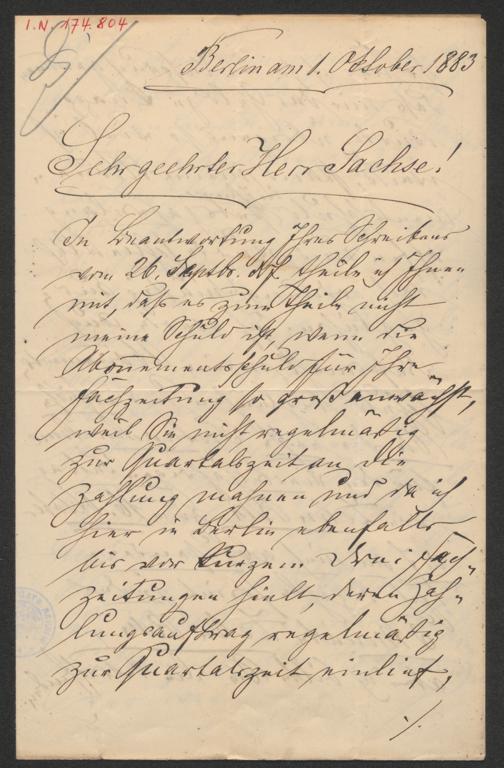 I.N. 174.804
Berlin am 1. Oktober 1883
Sehrgeehrter Herr Sachse!
In Beantwortung Ihres Schreibens
vom 26. Septbr. theile ich Ihnen
mit, daß es zum Theile nicht
meine Schuld ist, wenn die
Abonnementsschuld für Ihre
Fachzeitung so groß anwächst,
weil Sie nicht regelmäßig
zur Quartalszeit an die
Zahlung mahnen und da ich
hier in Berlin ebenfalls
bis vor kurzem drei Fach-
zeitungen hielt, deren Zah-
lungsauftrag regelmäßig
zur Quartalszeit einlief,
./.